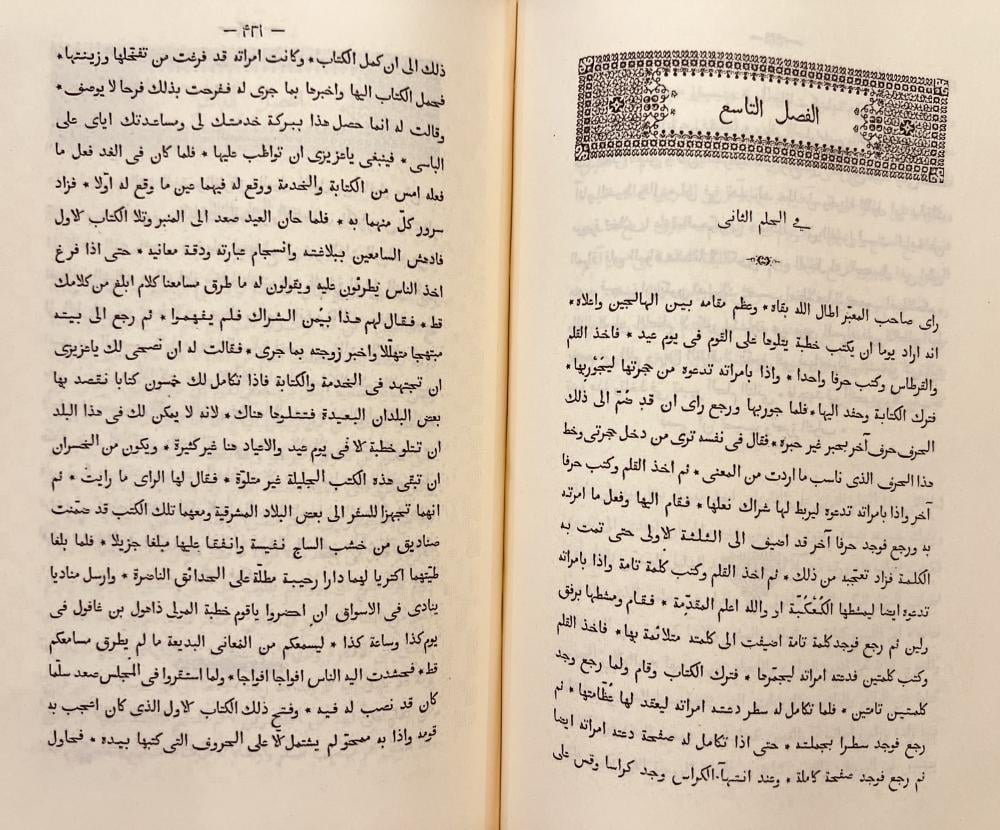 الفصل التاسع
في الحلم الثانى
راى صاحب المعبّر اطال الله بقاه * وعظم مقامه بين الهالجين واعلاه *
انه اراد يوما ان يكتب خطبة يتلوها على القوم فى يوم عيد * فاخذ القلم
والقرطاس وكتب حرفا واحدا * واذا بامراته تدعوه من حجرتها ليُجَوْرِبها *
فترك الكتابة وحفد اليها * فلما جوربها ورجع راى ان قد ضُمّ الى ذلك
الحرف حرف آخر بحبر غير حبره * فقال فى نفسه ترى من دخل حجرتى وخط
هذا الحرف الذى ناسب ما اردت من المعنى * ثم اخذ القلم وكتب حرفا
آخر واذا بامراته تدعوه ليربط لها شراك نعلها * فقام اليها وفعل ما امرته
به ورجع فوجد حرفا آخر قد اضيف الى الثلثة الاولى حتى تمت به
الكلمة فزاد تعجبه من ذلك * ثم اخذ القلم وكتب كلمة تامة واذا بامراته
تدعوه ايضا ليمشطها الكُعْكُبّة او والله اعلم المقدّمة * فقام ومشطها برفق
ولين ثم رجع فوجد كلمة تامة اضيفت الى كلمته متلائمة بها * فاخذ القلم
وكتب كلمتين فدعته امراته ليجمّرها * فترك الكتاب وقام ولما رجع وجد
كلمتين تامتين * فلما تكامل له سطر دعته امراته ليعقد لها عُظّامتها * ثم
رجع فوجد سطرا بجملته * حتى اذا تكامل له صفحة دعته امراته ايضا
ثم رجع فوجد صفحة كاملة * وعند انتهآء الكراس وجد كراسا وقس على
— ٤٣١ —
ذلك الى ان كمل الكتاب * وكانت امراته قد فرغت من تفتّحلها وزينتها *
فحمل الكتاب اليها واخبرها بما جرى له ففرحت بذلك فرحا لا يوصف *
وقالت له انما حصل هذا ببركة خدمتك لى ومساعدتك اياى على
الباسى * فينبغى ياعزيزى ان تواظب عليها * فلما كان فى الغد فعل ما
فعله امس من الكتابة والخدمة ووقع له فيهما عين ما وقع له اوّلا * فزاد
سرور كلّ منهما به * فلما حان العيد صعد الى المنبر وتلا الكتاب الاول
فادهش السامعين ببلاغته وانسجام عبارته ودقة معانيه * حتى اذا فرغ
اخذ الناس يطرئون عليه ويقولون له ما طرق مسامعنا كلام ابلغ من كلامك
قط * فقال لهم هذا بيُمن الشراك فلم يفهموا * ثم رجع الى بيته
مبتهجا متهلّلا واخبر زوجته بما جرى * فقالت له ان نصحى لك ياعزيزى
ان تجتهد فى الخدمة والكتابة فاذا تكامل لك خمسون كتابا نقصد بها
بعض البلدان البعيدة فتتلوها هناك * لانه لا يمكن لك فى هذا البلد
ان تتلو خطبة الا فى يوم عيد والاعياد هنا غير كثيرة * ويكون من الخسران
ان تبقى هذه الكتب الجليلة غير متلوّة * فقال لها الراى ما رايت * ثم
انهما تجهزا للسفر الى بعض البلاد المشرقية ومعهما تلك الكتب قد ضمّنت
صناديق من خشب الساج نفيسة وانفقا عليها مبلغا جزيلا * فلما بلغا
طيّتهما اكتريا لهما دارا رحيبة مطلّة على الحدائق الناضرة * وارسل مناديا
ينادى فى الاسواق ان احضروا ياقوم خطبة المولى ذاهول بن غافول فى
يوم كذا وساعة كذا * ليسمعكم من المعانى البديعة ما لم يطرق مسامعكم
قط * فحشدت اليه الناس افواجا افواجا * ولما استقروا فى المجلس صعد سلّما
كان قد نصب له فيه * وفتح ذلك الكتاب الاول الذى كان اعجب به
قومه واذا به ممحوّ لم يشتمل الا على الحروف التى كتبها بيده * فحاول